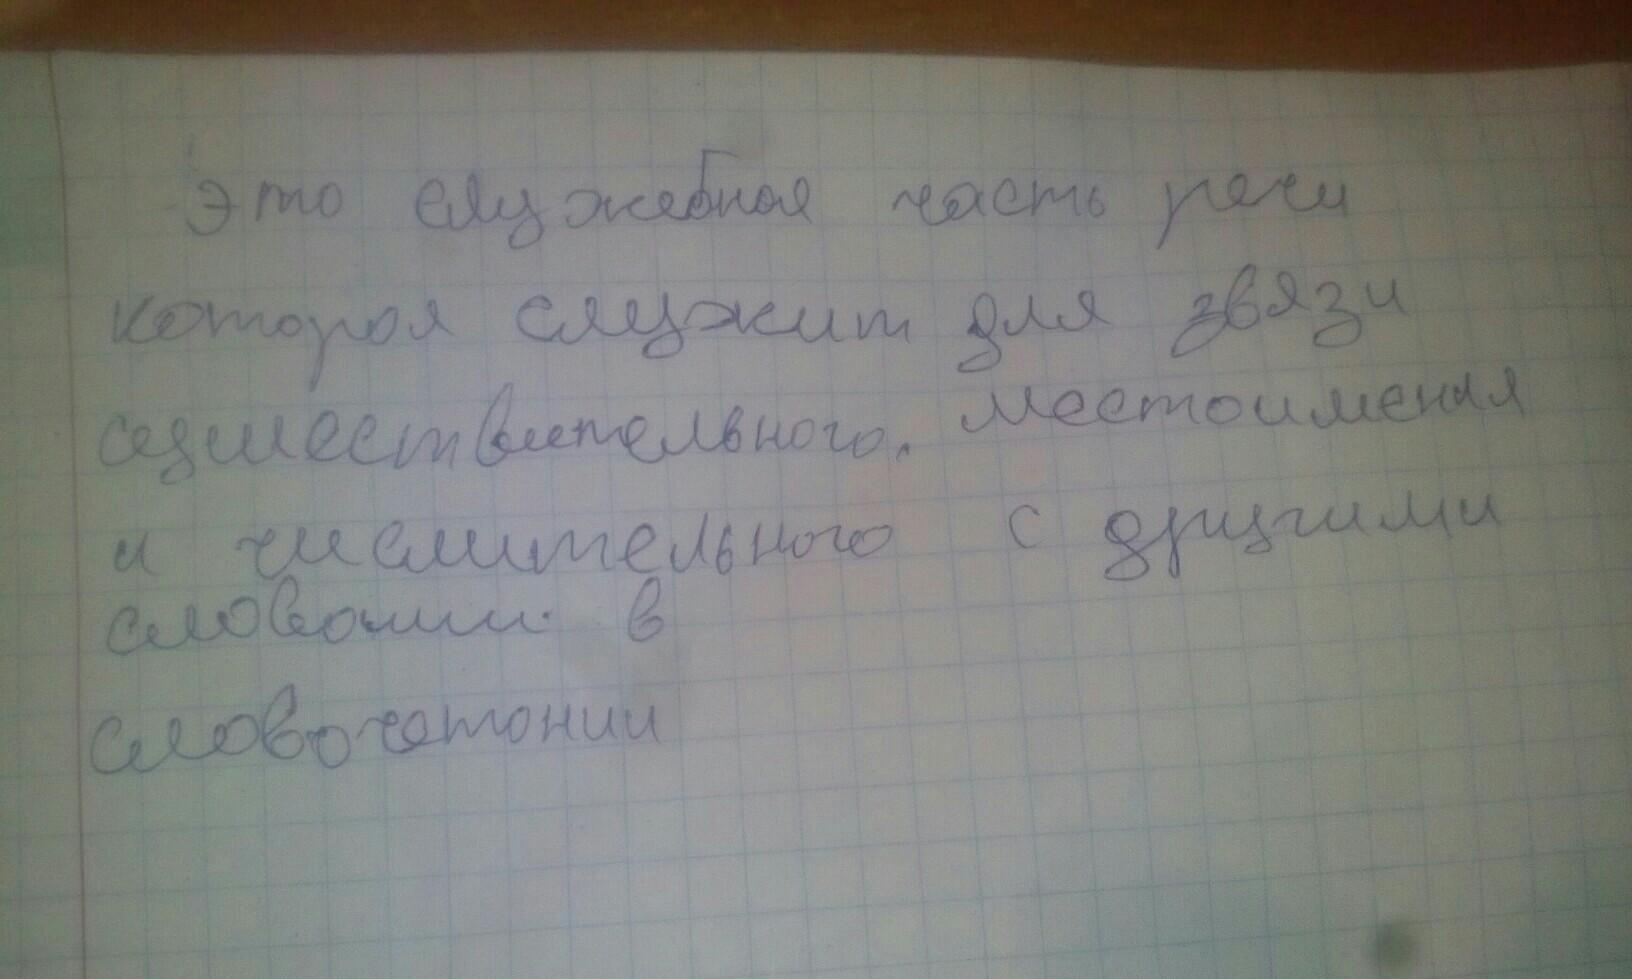 это служебная часть речи
которая служит для звязи
существительного. местоимения
и числительного с другими
словами в
словочетонии